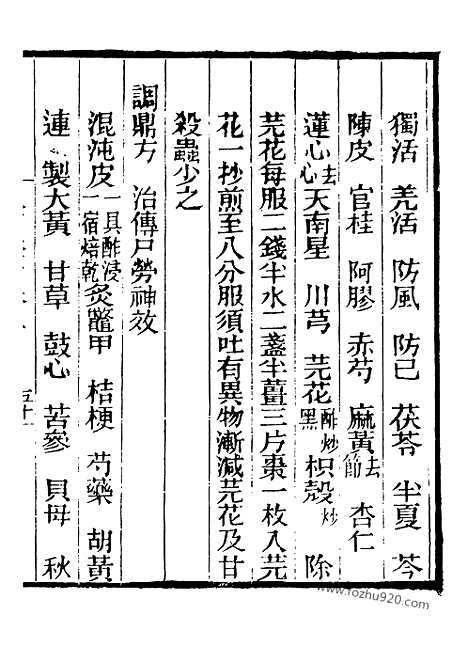 獨活　羌活　防風　防己　茯苓　半夏　芩
陳皮　官桂　阿膠　赤芍　麻黃去節　杏仁
蓮心去心　天南星　川芎　芫花醋炒黑　枳殼炒　除
芫花每服二錢半水二盞半薑三片棗一枚入芫
花一抄煎至八分服須吐有異物漸減芫花及甘
殺蟲少之
調鼎方　治傳尸勞神效
混沌皮一具酢浸一宿焙乾　炙鼈甲　桔梗　芍藥　胡黃
連　製大黃　甘草　鼓心　苦參　貝母　秋
www.fozhu920.com